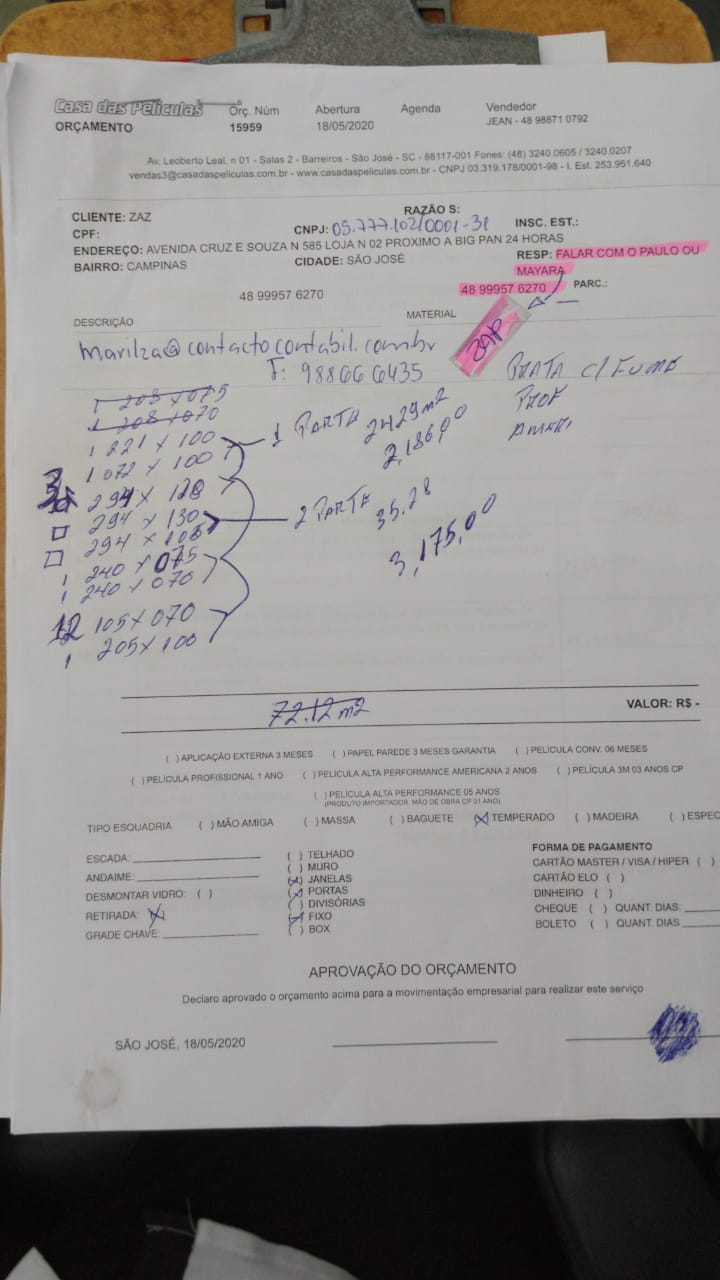 Casa das Películas Orç. Núm Abertura Agenda Vendedor
ORÇAMENTO 15959 18/05/2020 JEAN - 48 98871 0792
Av. Leoberto Leal, n 01 - Salas 2 - Barreiros - São José - SC - 88117-001 Fones: (48) 3240.0605 / 3240.0207
vendas3@casadaspeliculas.com.br - www.casadaspeliculas.com.br - CNPJ 03.319.178/0001-98 - I. Est. 253.951.640
RAZÃO S:
CLIENTE: ZAZ
CPF: CNPJ: 05.777.102/0001-31 INSC. EST.:
ENDEREÇO: AVENIDA CRUZ E SOUZA N 585 LOJA N 02 PROXIMO A BIG PAN 24 HORAS
BAIRRO: CAMPINAS CIDADE: SÃO JOSÉ RESP: FALAR COM O PAULO OU
MAYARA
48 99957 6270 48 99957 6270 PARC.:
DESCRIÇÃO MATERIAL
marilza@contactocontabil.com.br ZAP
T: 98866 6435 PRATA C/ FUME
1 208 x 075 PROF
1 208 x 070
1 221 x 100 1 PARTE 24.29m2
1 072 x 100 2,186,00
294 x 128
294 x 130 2 PARTE 35.28
294 x 108 3,175,00
1 240 x 075
1 240 x 070
12 105 x 070
1 205 x 100
72.12 m2 VALOR: R$ -
( ) APLICAÇÃO EXTERNA 3 MESES ( ) PAPEL PAREDE 3 MESES GARANTIA ( ) PELÍCULA CONV. 06 MESES
( ) PELÍCULA PROFISSIONAL 1 ANO ( ) PELÍCULA ALTA PERFORMANCE AMERICANA 2 ANOS ( ) PELÍCULA 3M 03 ANOS CP
( ) PELÍCULA ALTA PERFORMANCE 05 ANOS
(PRODUTO IMPORTADOR, MÃO DE OBRA CP 01 ANO)
TIPO ESQUADRIA ( ) MÃO AMIGA ( ) MASSA ( ) BAGUETE (X) TEMPERADO ( ) MADEIRA ( ) ESPEC
ESCADA: ( ) TELHADO FORMA DE PAGAMENTO
ANDAIME: ( ) MURO CARTÃO MASTER / VISA / HIPER ( )
DESMONTAR VIDRO: ( ) (X) JANELAS CARTÃO ELO ( )
RETIRADA: X (X) PORTAS DINHEIRO ( )
GRADE CHAVE: ( ) DIVISÓRIAS CHEQUE ( ) QUANT. DIAS:
(X) FIXO BOLETO ( ) QUANT. DIAS
( ) BOX
APROVAÇÃO DO ORÇAMENTO
Declaro aprovado o orçamento acima para a movimentação empresarial para realizar este serviço
SÃO JOSÉ, 18/05/2020